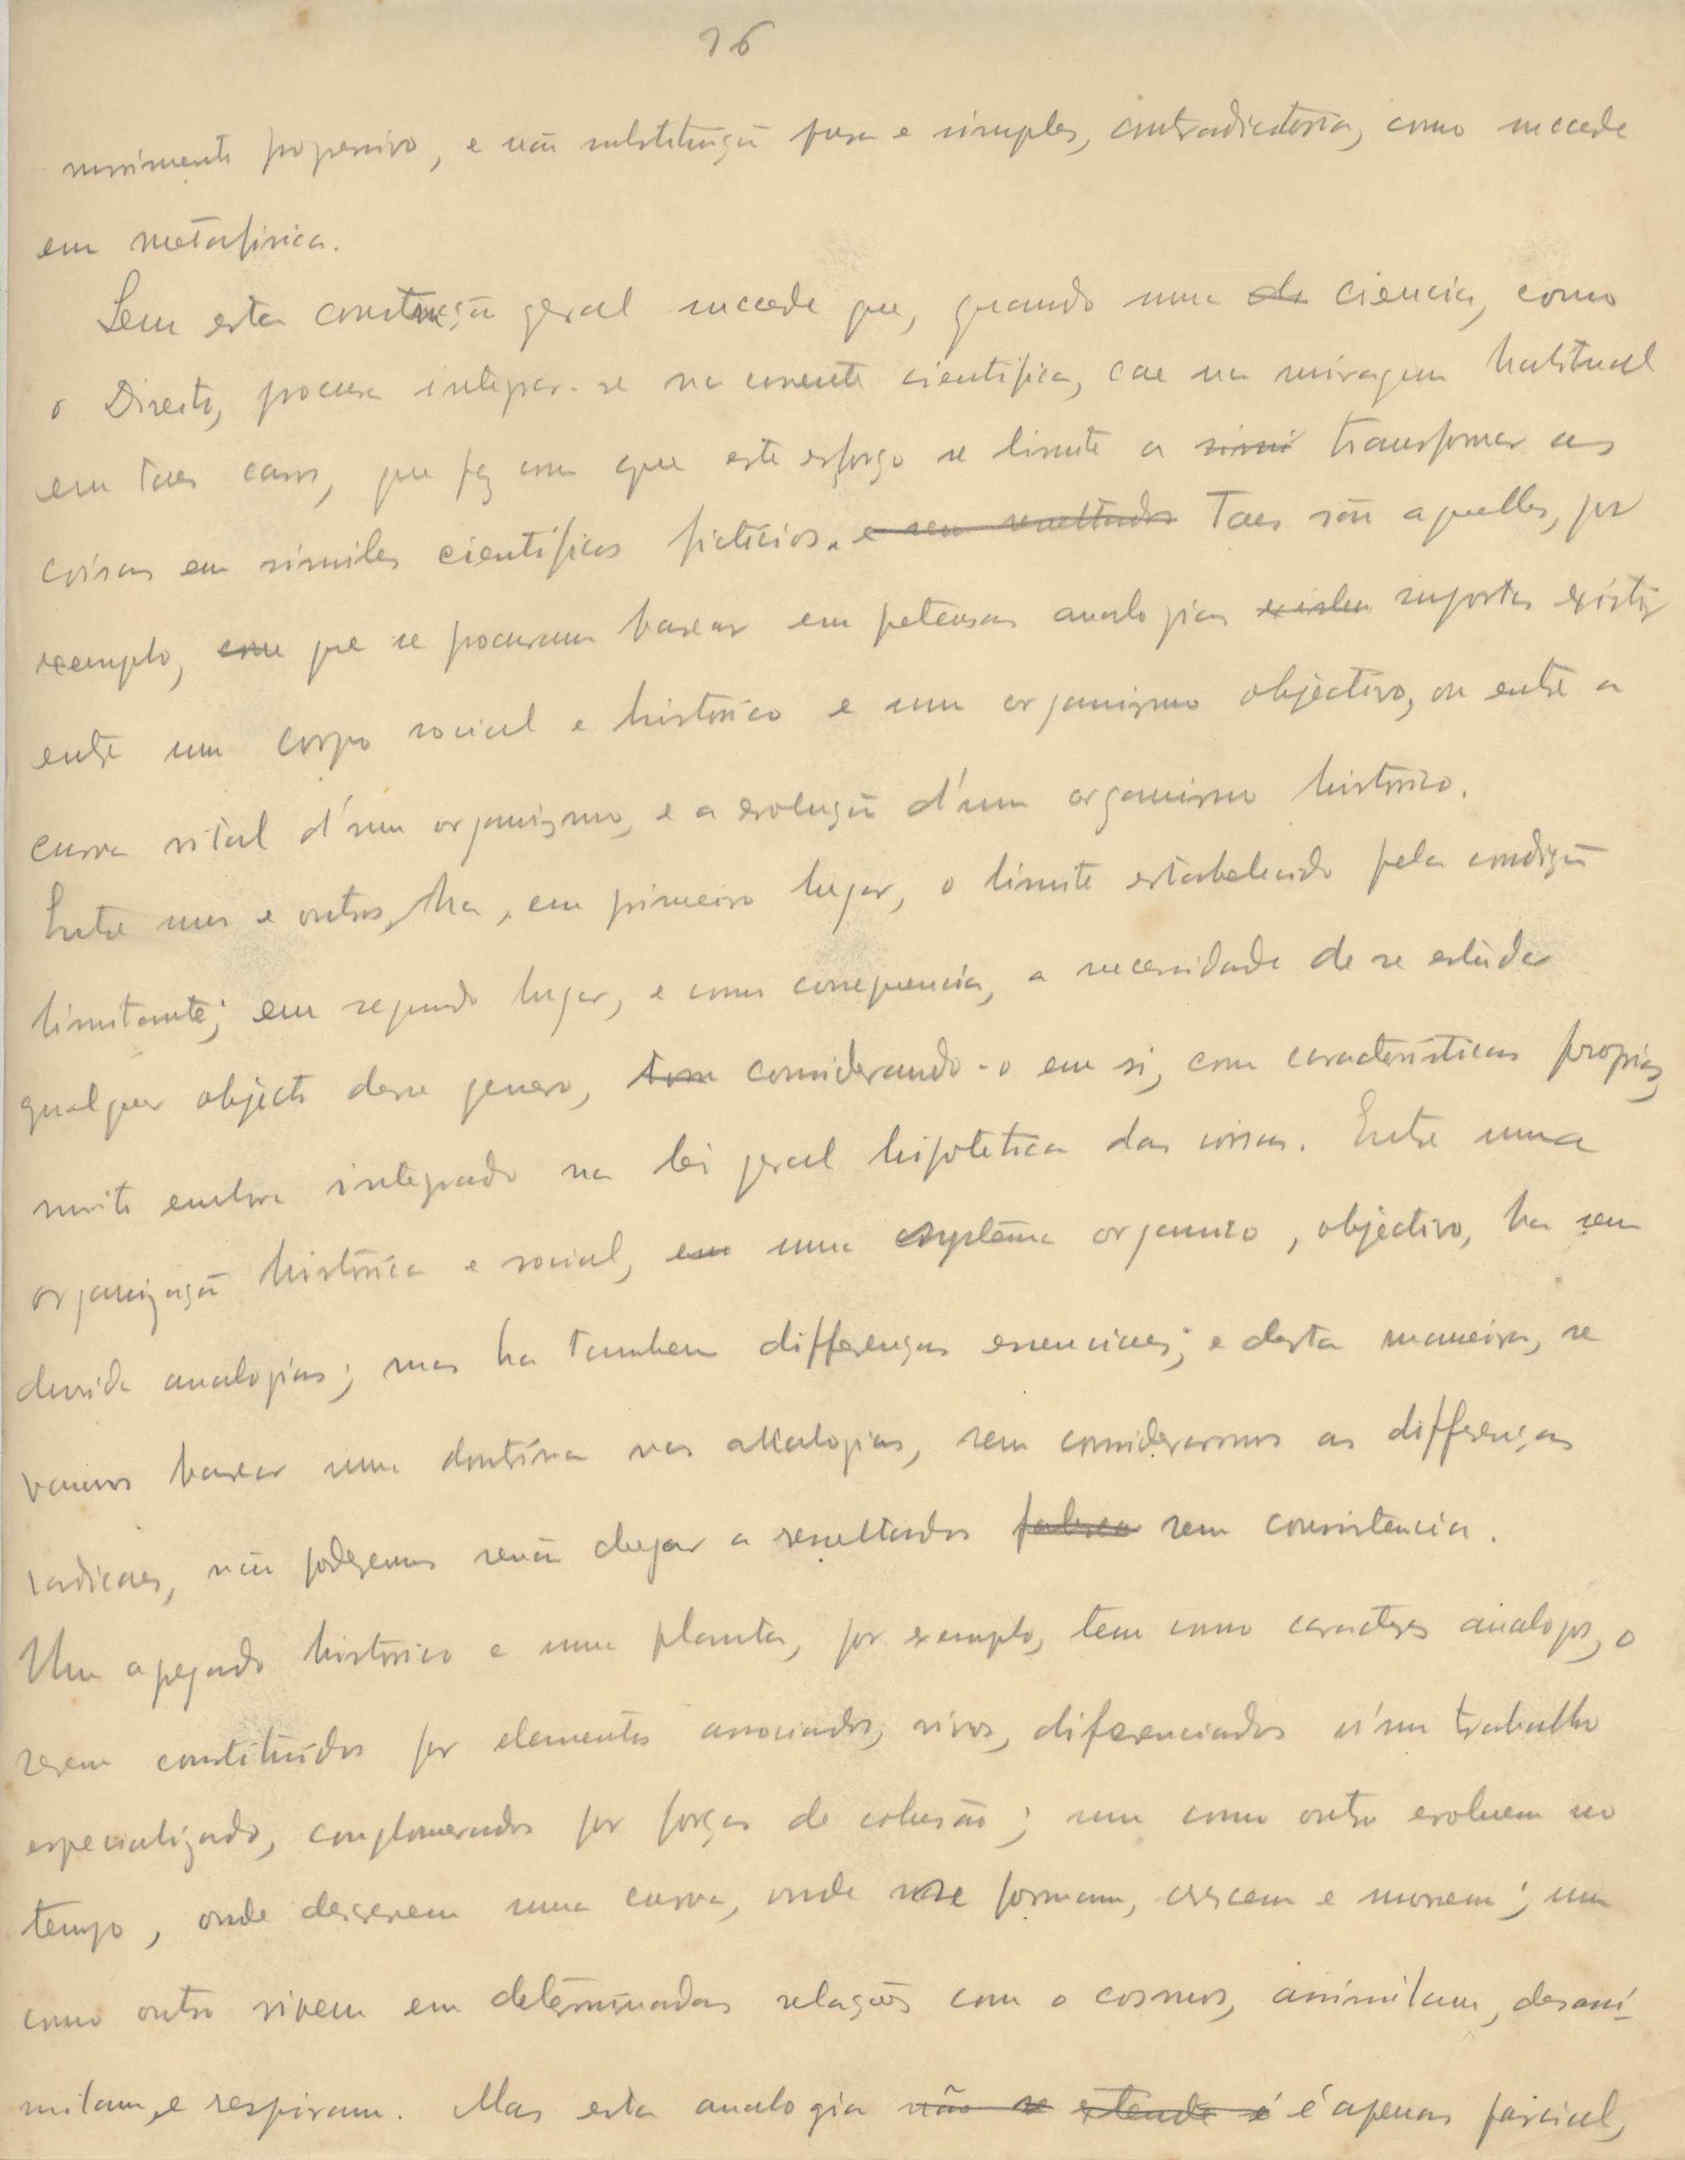 16
movimento progressivo, e não substituição pura e simples, contradictoria, como succede
em metafisica.
Sem esta construção geral succede que, quando uma de ciencia, como
o Direito, procura integrar-se na corrente cientifica, cae na miragem habitual
em taes casos, que faz com que este esforço se limite a simi transformar as
coisas em similes cientificos ficticios. e seu resultados Taes são aquelles, por
exemplo, com que se procuram basear em pretensas analogias existen suportas existir
entre um corpo social e historico e um organizmo objectivo, ou entre a
curva vital d'um organizmo, e a evolução d'um organismo historico.
Entre uns e outros, ha, em primeiro lugar, o limite estabelecido pela condição
limitante; em segundo lugar, e como consequencia, a necessidade de se estudar
qualquer objecto desse genero, tom considerando-o em si, com caracteristicas proprias,
muito embora integrado na lei geral hipotetica das coisas. Entre uma
organização historica e social, em uma systema organico, objectivo, ha sem
duvida analogias; mas ha tambem differenças essenciaes; e desta maneira, se
vamos basear uma doutrina nas analogias, sem considerarmos as differenças
radicaes, não poderemos senão chegar a resultados falsea sem consistencia.
Um agregado historico e uma planta, por exemplo, tem como caracteres analogos, o
serem constituidos por elementos associados, vivos, diferenciados n'um trabalho
especializado, conglomerados por forças de cohesão; um como outro evoluem no
tempo, onde descrevem uma curva, onde se formam, crescem e morrem; um
como outro vivem em determinadas relações com o cosmos, assimilam, desassi-
milam, e respiram. Mas esta analogia não se extende é é apenas parcial,